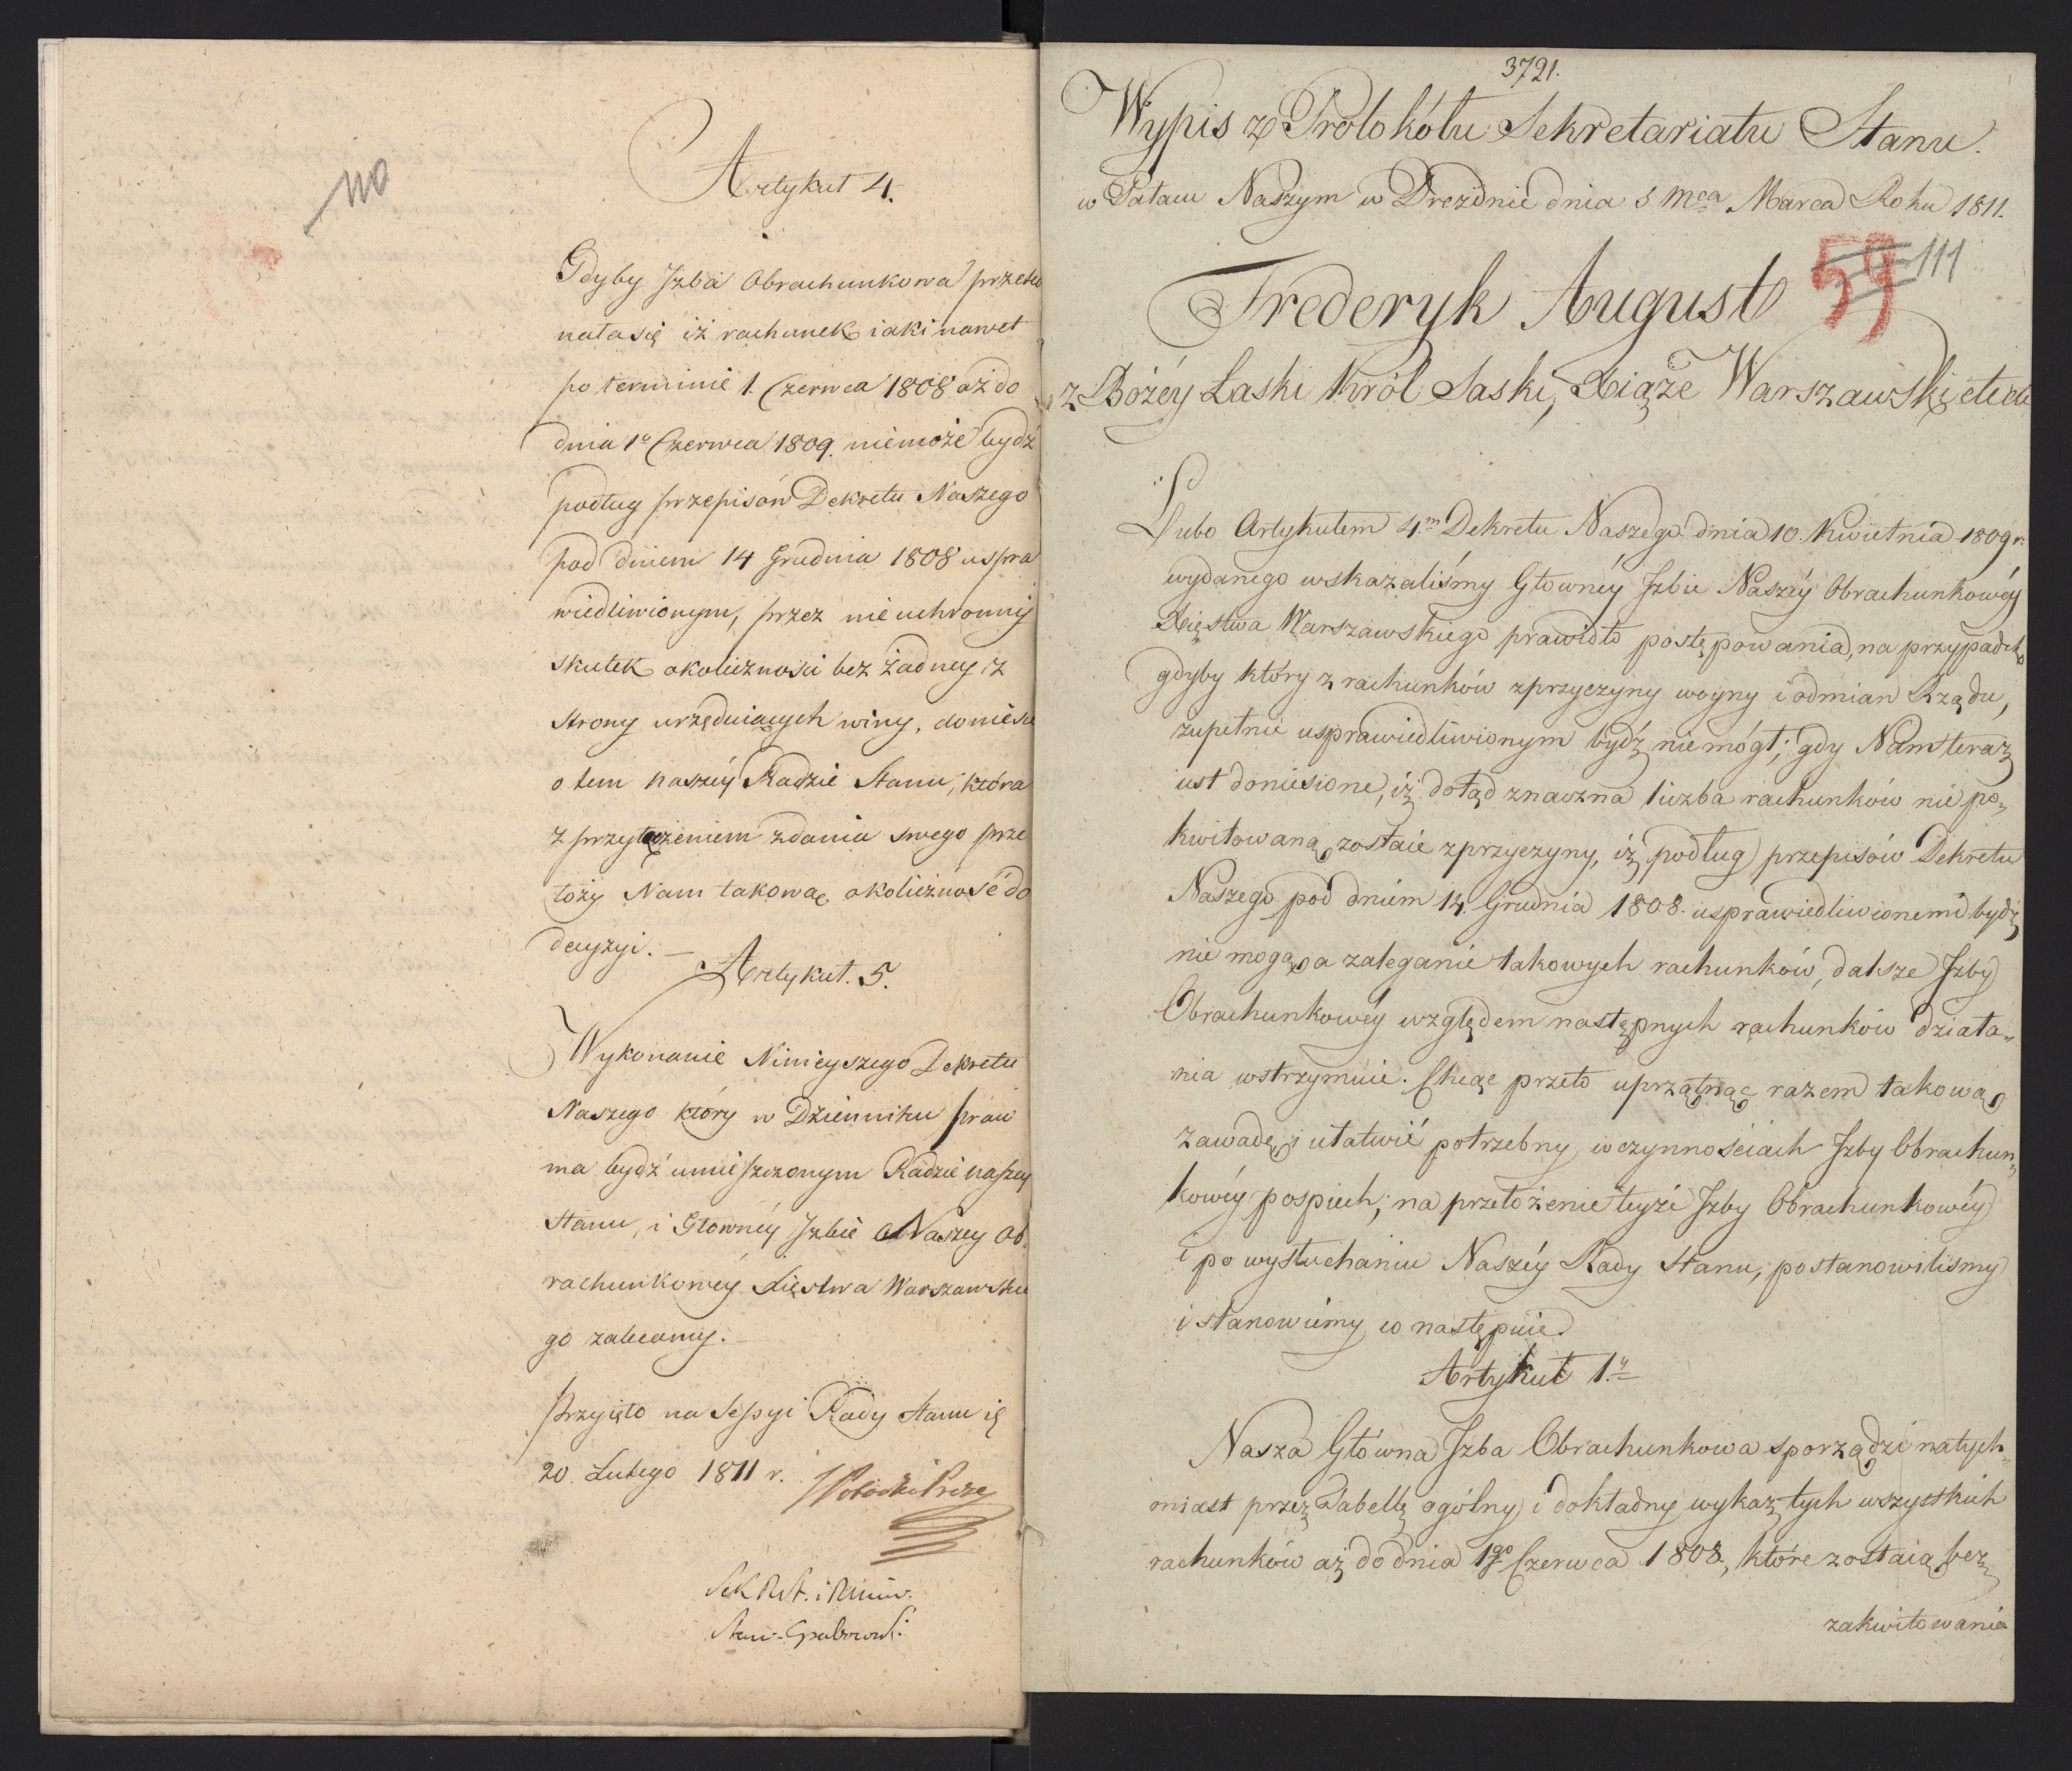 110
Artykuł 4.
Gdyby Jzba Obrachunkowa przeko
nała się iż rachunek iaki nawet
po terminie 1. Czerwca 1808 aż do
dnia 1º Czerwca 1809. nie może bydź
podług przepisów Dekretu Naszego
pod dniem 14 Grudnia 1808 uspra
wiedliwionym, przez nieuchronny
skutek okoliczności bez żadney z
strony urzęduiących winy, doniesie
o tem naszéy Radzie Stanu, która
z przyłączeniem zdania swego prze
łoży Nam takową okoliczność do
decyzyi. —
Artykuł. 5.
Wykonanie Ninieyszego Dekretu
Naszego który w Dzienniku praw
ma bydź umieszczonym Radzie naszey
Stanu, i Głownéy Jzbie Naszey Ob.
rachunkowey Xięstwa Warszawskie
go zalecamy. —
Przyięto na Sessyi Rady Stanu
20. Lutego 1811 r.
Sek.
Stan. Grabowski.
3721.
Wypis z Protokółu Sekretariatu Stanu.
w Pałacu Naszym w Dreźdnie dnia 5 mca Marca Roku 1811.
59 111
Frederyk August
z Bożéy Łaski Król Saski, Xiąże Warszawski etc etc
Lubo Artykułem 4.m Dekretu Naszego dnia 10. Kwietnia 1809 r.
wydanego wskazaliśmy Głownéy Jzbie Naszéy Obrachunkowéy
Xięstwa Warszawskiego prawidło postępowania, na przypadek
gdyby który z rachunków z przyczyny woyny i odmian Rządu,
zupełnie usprawiedliwionym bydź nie mógł; gdy Nam teraz
iest doniesione, iż dotąd znaczna liczba rachunków nie po„
kwitowaną zostaie z przyczyny, iż podług przepisów Dekretu
Naszego pod dniem 14. Grudnia 1808. usprawiedliwionemi bydź
nie mogą, a zaleganie takowych rachunków, dalsze Jzby
Obrachunkowéy względem następnych rachunków działa„
nia wstrzymuie. Chcąc przeto uprzątnąć razem takową
zawadę, i ułatwić potrzebny w czynnościach Jzby Obrachun„
kowéy pospiech; na przełożenie teyże Jzby Obrachunkowéy
i po wysłuchaniu Naszéy Rady Stanu, postanowiliśmy
i stanowiemy co następuie.
Artykuł 1.y
Nasza Główna Jzba Obrachunkowa sporządzi natych„
miast przez Tabellę ogólny i dokładny wykaz tych wszystkich
rachunków aż do dnia 1go Czerwca 1808., które zostaią bez
zakwitowania